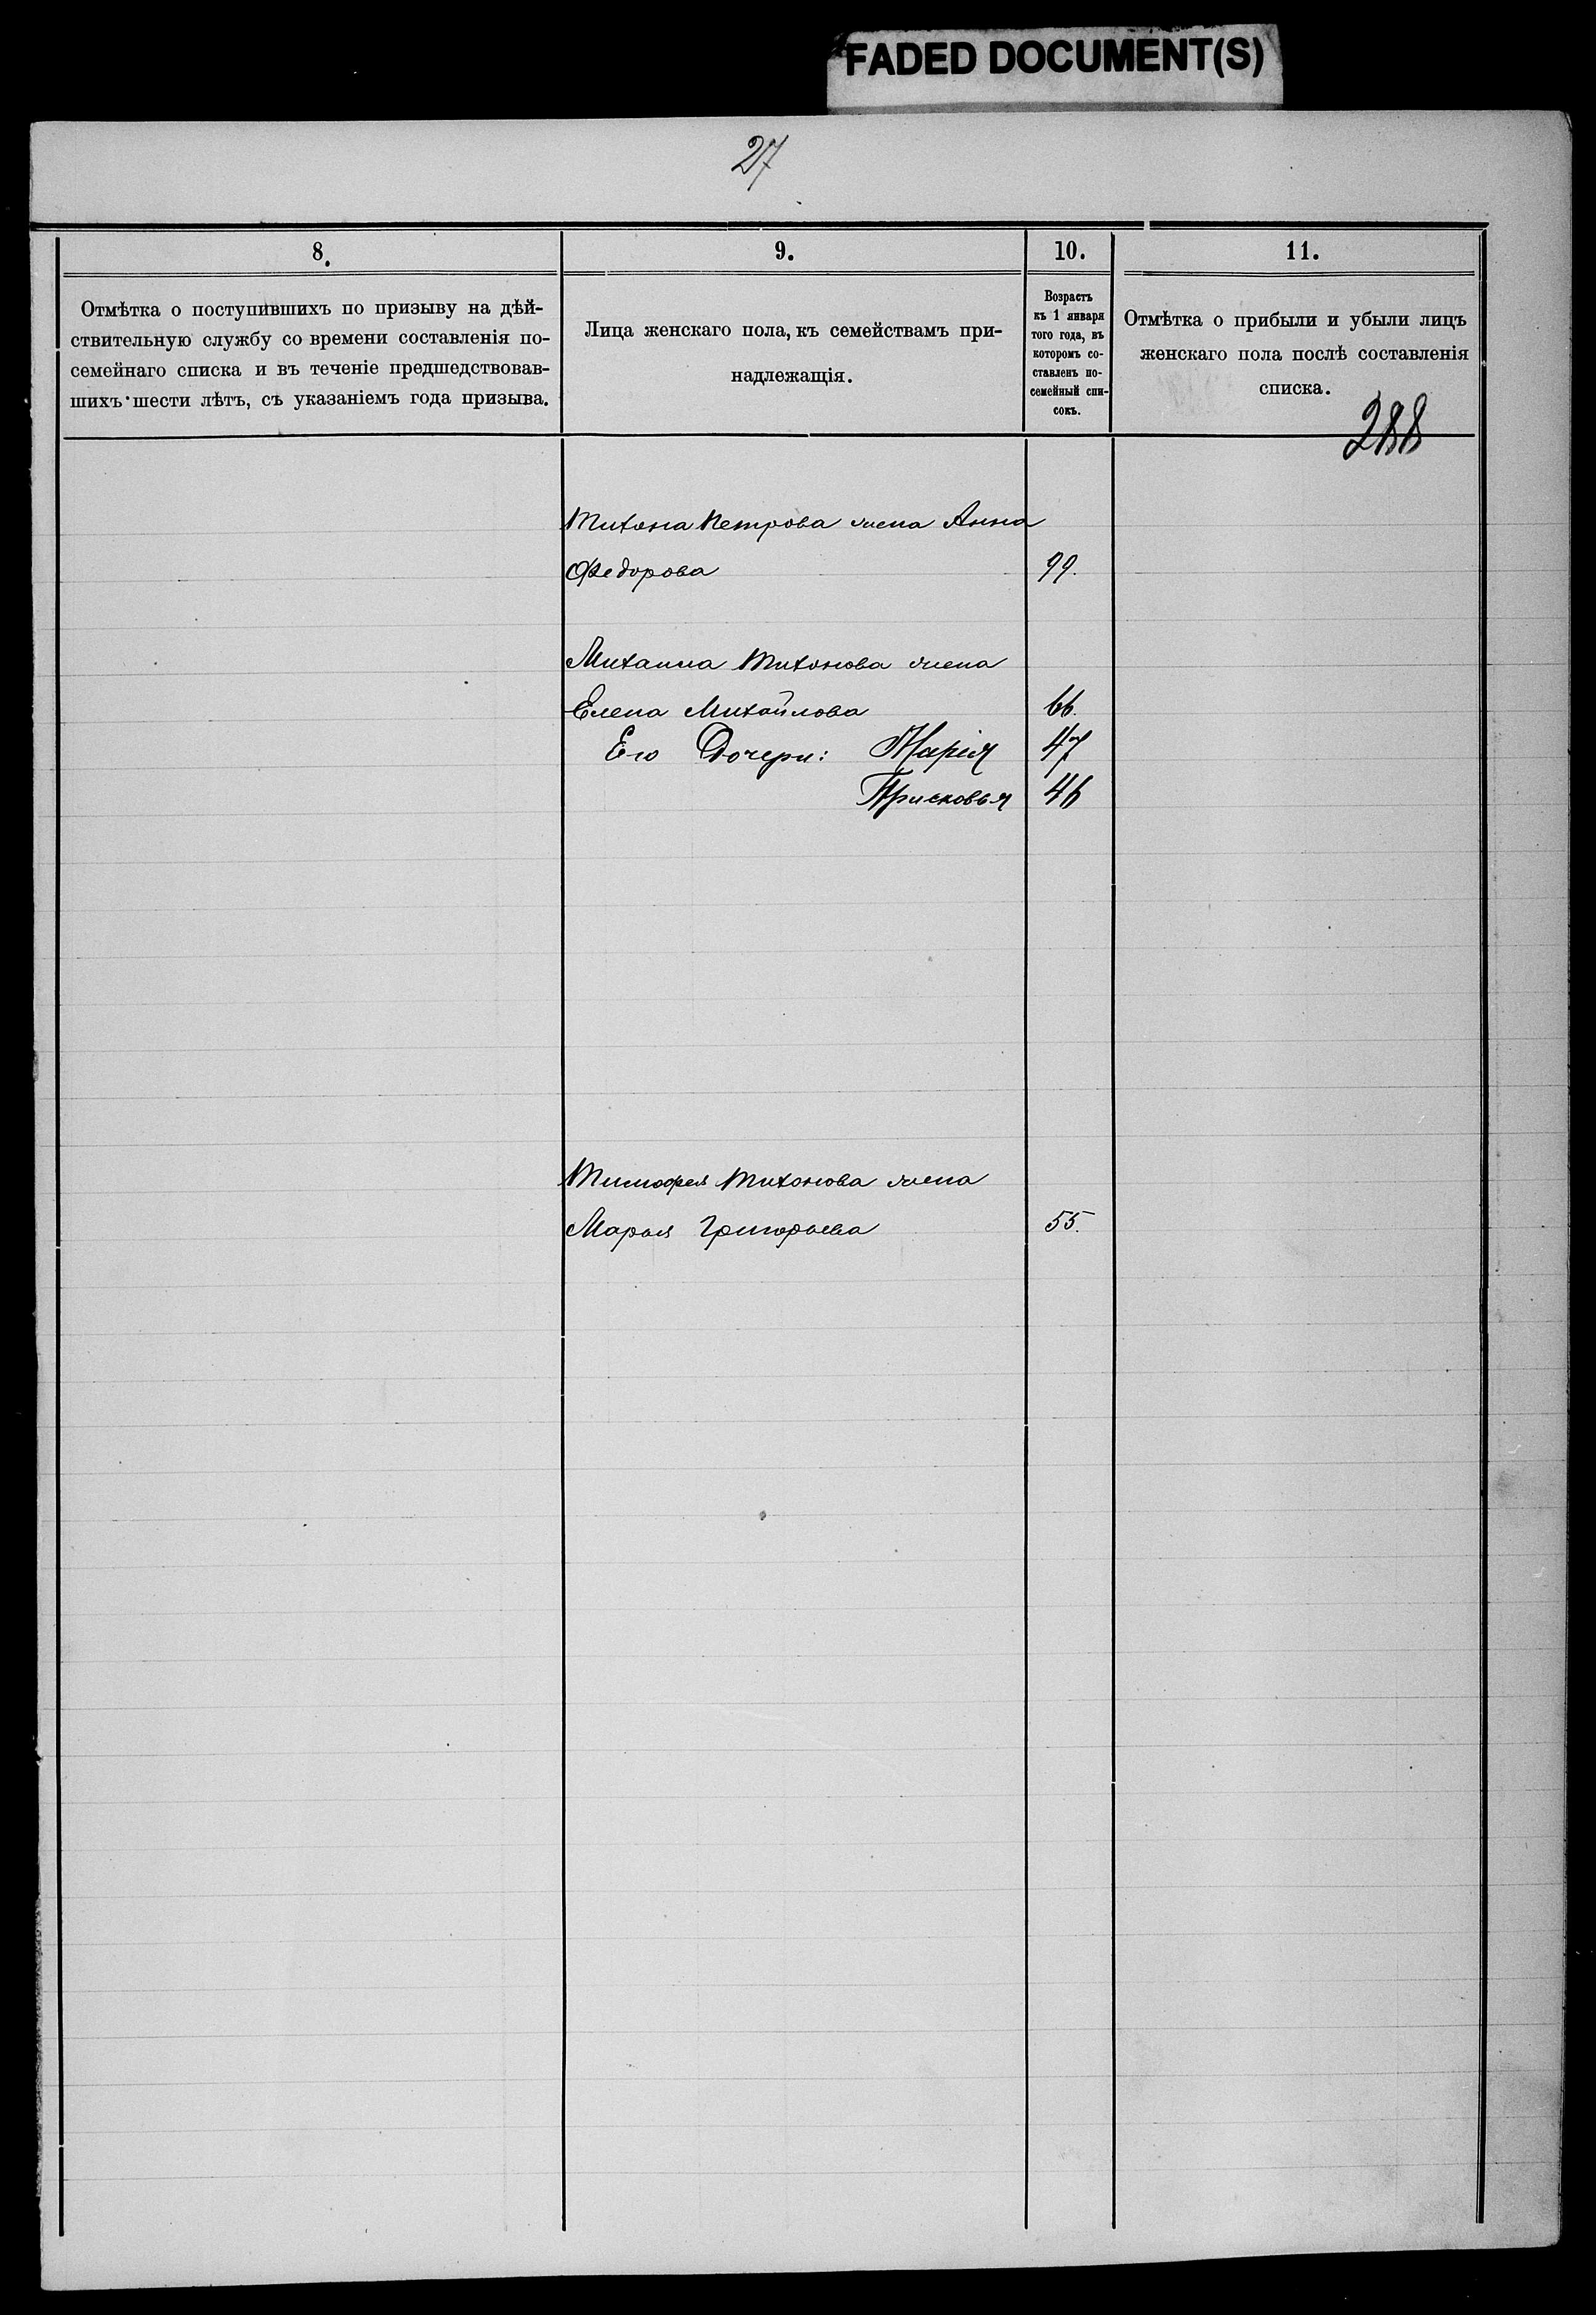 FADED DOCUMENT(S)
27
8.
Отмѣтка о поступившихъ по призыву на дѣй-
ствительную службу со времени составленія по-
семейнаго списка и въ теченіе предшедствовав-
шихъ шести лѣтъ, съ указаніемъ года призыва.
9.
Лица женскаго пола, къ семействамъ при-
надлежащія.
10.
Возрастъ
къ 1 января
того года, въ
которомъ со-
ставленъ по-
семейный спи-
сокъ.
11.
Отмѣтка о прибыли и убыли лицъ
женскаго пола послѣ составленія
списка.
288
Тихона Петрова жена Анна
Федорова 99.
Михаила Тихонова жена
Елена Михайлова 66.
Его Дочери: Марія 47
Присковья 46
Тимофея Тихонова жена
Марья Григорьева 55.